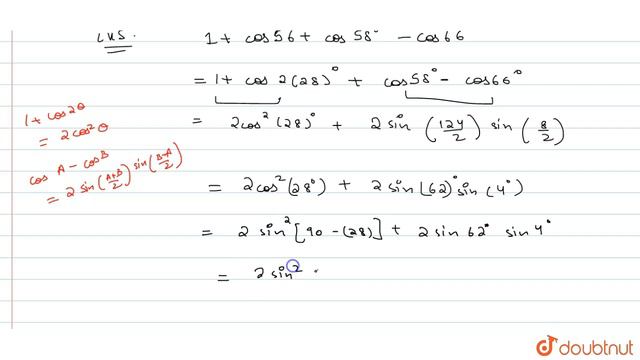 LHS. 1 + cos 56 + cos 58° - cos 66
= 1 + cos 2(28)° + cos 58° - cos 66°
1 + cos2θ
= 2cos²θ
= 2cos²(28)° + 2 sin (124/2) sin (8/2)
cos A - cos B
= 2 sin (A+B/2) sin (B-A/2)
= 2cos²(28°) + 2 sin(62)° sin(4°)
= 2 sin² [90 - (28)] + 2 sin 62° sin 4°
= 2 sin²
doubtnut